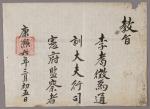 教旨
李喬徵爲通
訓大夫行司
憲府監察者
康熙八年三月初五日